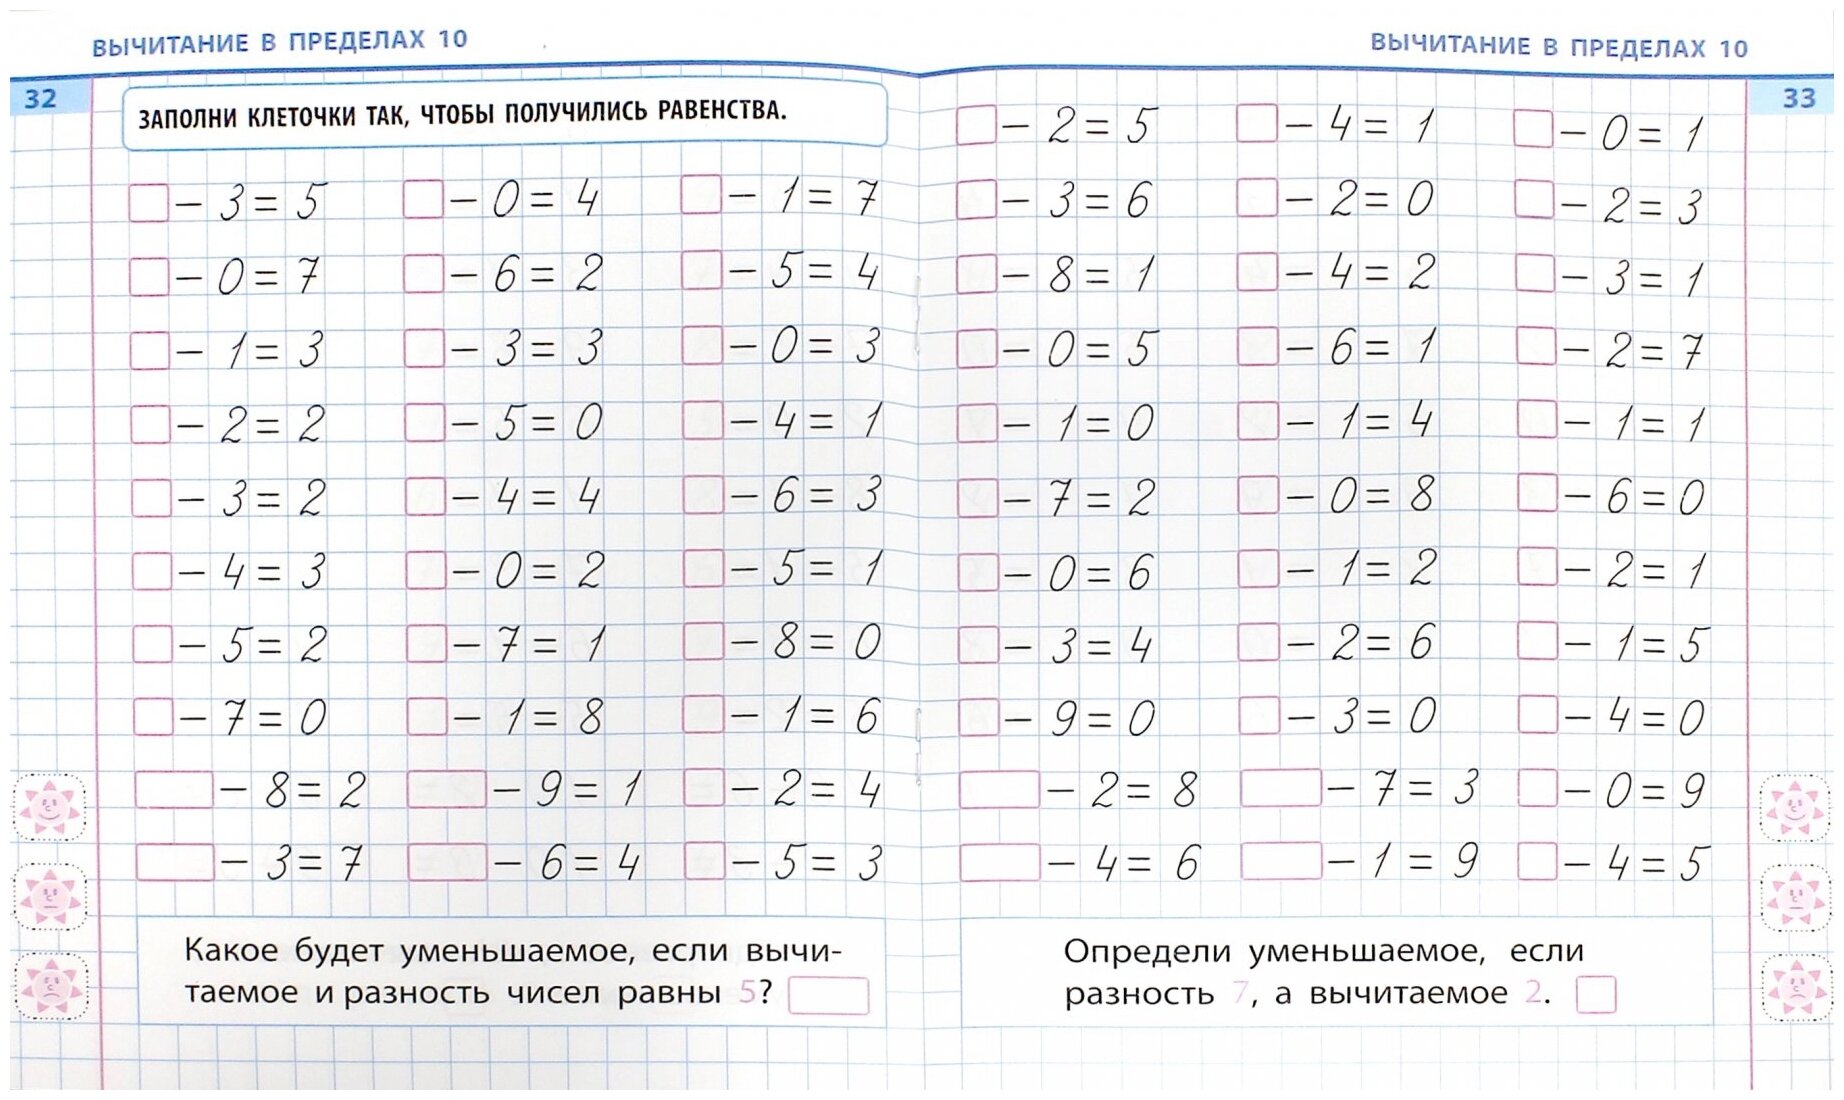 ВЫЧИТАНИЕ В ПРЕДЕЛАХ 10
32
ЗАПОЛНИ КЛЕТОЧКИ ТАК, ЧТОБЫ ПОЛУЧИЛИСЬ РАВЕНСТВА.
− 3 = 5 − 0 = 4 − 1 = 7
− 0 = 7 − 6 = 2 − 5 = 4
− 1 = 3 − 3 = 3 − 0 = 3
− 2 = 2 − 5 = 0 − 4 = 1
− 3 = 2 − 4 = 4 − 6 = 3
− 4 = 3 − 0 = 2 − 5 = 1
− 5 = 2 − 7 = 1 − 8 = 0
− 7 = 0 − 1 = 8 − 1 = 6
− 8 = 2 − 9 = 1 − 2 = 4
− 3 = 7 − 6 = 4 − 5 = 3
Какое будет уменьшаемое, если вычи-
таемое и разность чисел равны 5?
ВЫЧИТАНИЕ В ПРЕДЕЛАХ 10
33
− 2 = 5 − 4 = 1 − 0 = 1
− 3 = 6 − 2 = 0 − 2 = 3
− 8 = 1 − 4 = 2 − 3 = 1
− 0 = 5 − 6 = 1 − 2 = 7
− 1 = 0 − 1 = 4 − 1 = 1
− 7 = 2 − 0 = 8 − 6 = 0
− 0 = 6 − 1 = 2 − 2 = 1
− 3 = 4 − 2 = 6 − 1 = 5
− 9 = 0 − 3 = 0 − 4 = 0
− 2 = 8 − 7 = 3 − 0 = 9
− 4 = 6 − 1 = 9 − 4 = 5
Определи уменьшаемое, если
разность 7, а вычитаемое 2.